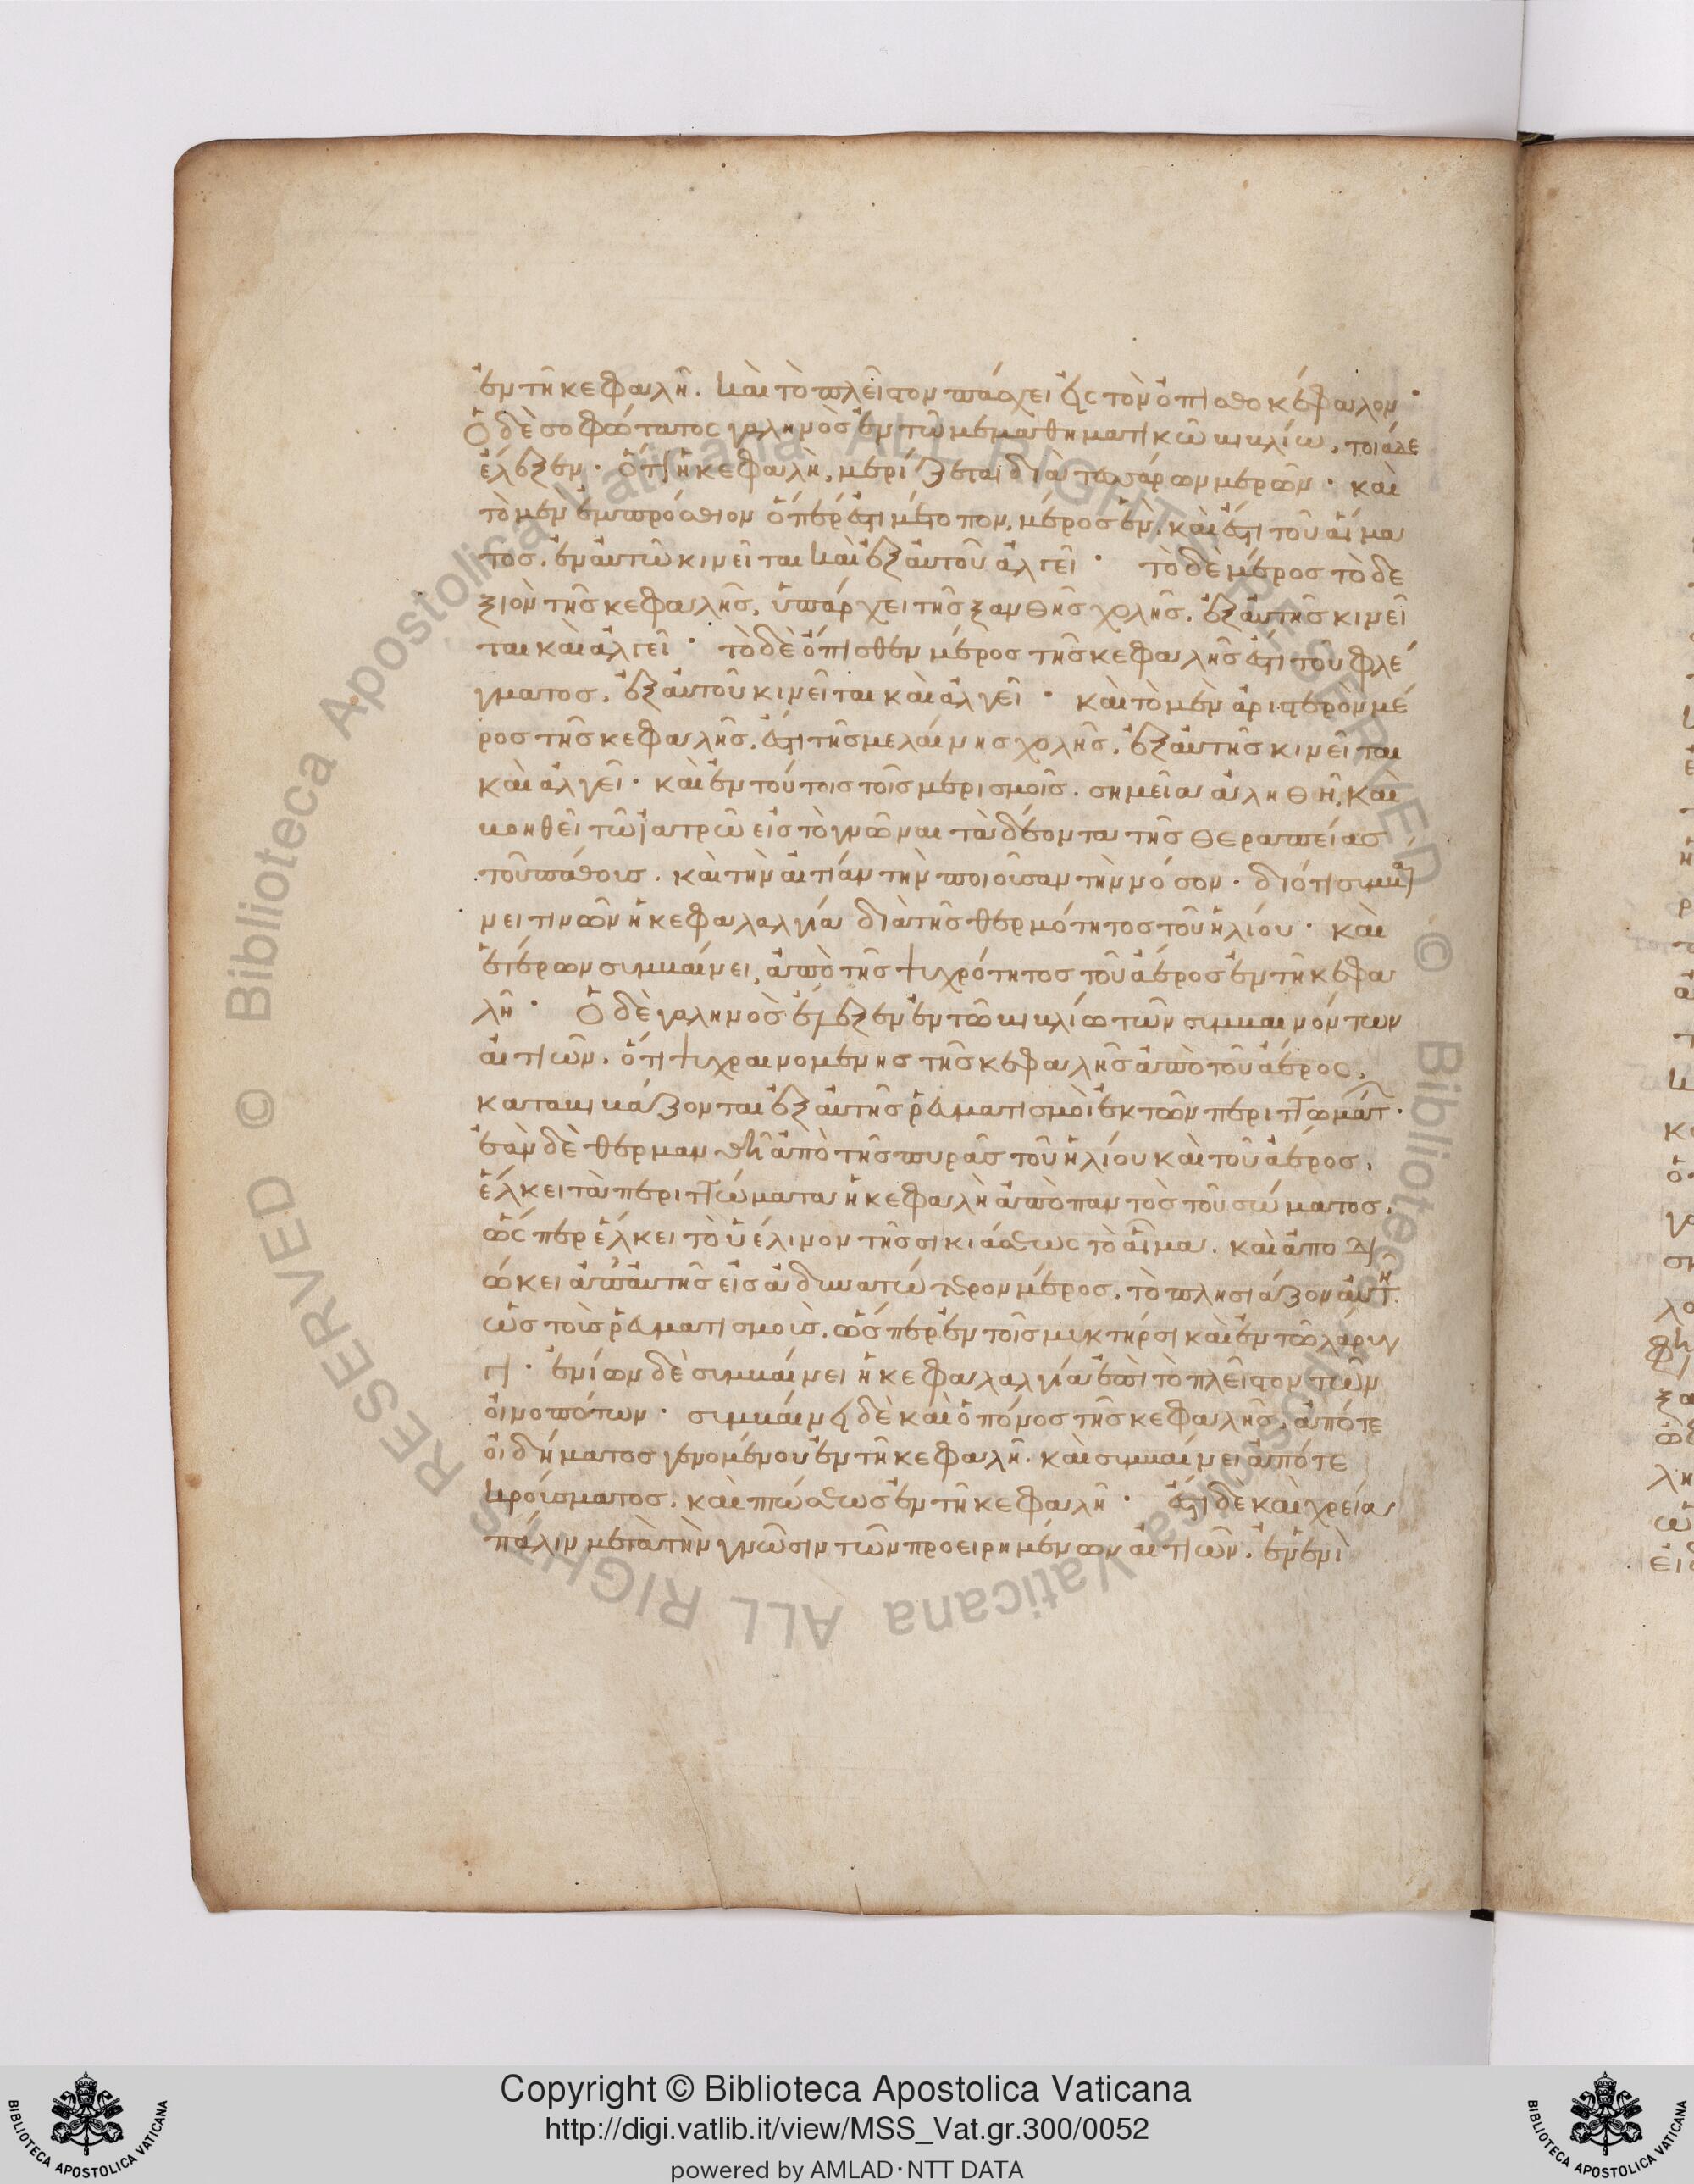 ἐν τῇ κεφαλῇ. καὶ τὸ πλεῖστον πάσχει εἰς τὸν ὀπισθοκέφαλον·
Ὁ δὲ σοφώτατος γαληνὸς ἐν τῷ μεμαθηματικῶ βιβλίω, τοιάδε
ἔλεξεν· ὅτι ἡ κεφαλὴ, μερίζεται διὰ τεσσάρων μερῶν· καὶ
τὸ μὲν ἐμπρόσθιον ὅπέρ ἐστι μέτοπον, μέρος ἐν. καὶ ἐστι τοῦ αἵμα
τος. ἐν αὐτῶ κινεῖται καὶ ἐξ αὐτοῦ ἀλγεῖ· τὸ δὲ μέρος τὸ δε
ξιὸν τῆς κεφαλῆς, ὑπάρχει τῆς ξανθῆς χολῆς. ἐξ αὐτῆς κινεῖ
ται καὶ ἀλγεῖ· τὸ δὲ ὄπισθεν μέρος τῆς κεφαλῆς ἐστι τοῦ φλέ
γματος. ἐξ αὐτοῦ κινεῖται καὶ ἀλγεῖ· καὶ τὸ μὲν ἀριστερὸν μέ
ρος τῆς κεφαλῆς, ἐστι τῆς μελαίνης χολῆς. ἐξ αὐτῆς κινεῖται
καὶ ἀλγεῖ· καὶ ἐν τούτοις τοῖς μερισμοῖς. σημεῖα ἀληθῆ, καὶ
βοηθεῖ τῶ ἰατρῶ εἰς τὸ γνῶναι τὰ δέοντα τῆς θεραπείας
τοῦ πάθους. καὶ τὴν αἰτίαν τὴν ποιοῦσαν τὴν νόσον· διότι συμβαί
νει τινῶν ἡ κεφαλαλγία διὰ τῆς θερμότητος τοῦ ἡλίου· καὶ
ἑτέρων συμβαίνει, ἀπὸ τῆς ψυχρότητος τοῦ ἀέρος ἐν τῇ κεφα
λῆ· Ὁ δὲ γαληνὸς ἔλεξεν ἐν τῶ βιβλίω τῶν συμβαινόντων
αἰτιῶν. ὅτι ψυχραινομένης τῆς κεφαλῆς ἀπὸ τοῦ ἀέρος,
καταβιβάζονται ἐξ αὐτῆς ῥευματισμοὶ ἐκ τῶν περιττωμάτ·
ἐὰν δὲ θερμανθῆ ἀπὸ τῆς πυρᾶς τοῦ ἡλίου καὶ τοῦ ἀέρος,
ἕλκει τὰ περιττώματα ἡ κεφαλὴ ἀπὸ παντὸς τοῦ σώματος.
ὥς περ ἕλκει τὸ ὑέλινον τῆς σικιάσεως τὸ αἷμα. καὶ ἀπο δι
ώκει ἀπ' αὐτῆς εἰς ἀδυνατώτερον μέρος. τὸ πλησιάζον αὐτῆ.
ὡς τοῖς ῥευματισμοῖς. ὥς περ ἐν τοῖς μυκτήρσι καὶ ἐν τῶ λάρυγ
γι· ἐνίων δὲ συμβαίνει ἡ κεφαλαλγία ἐπὶ τὸ πλεῖστον τῶν
οἰνοπότων· συμβαίνει δὲ καὶ ὁ πόνος τῆς κεφαλῆς, ἀπότε
οἰδήματος γενομένου ἐν τῇ κεφαλῇ. καὶ συμβαίνει ἀπότε
κροίσματος. καὶ πτώσεως ἐν τῇ κεφαλῇ· ἐστι δὲ καὶ χρεία
πάλιν μετὰ τὴν γνῶσιν τῶν προειρημένων αἰτιῶν. ἐν ἑνὶ
Copyright © Biblioteca Apostolica Vaticana
http://digi.vatlib.it/view/MSS_Vat.gr.300/0052
powered by AMLAD·NTT DATA